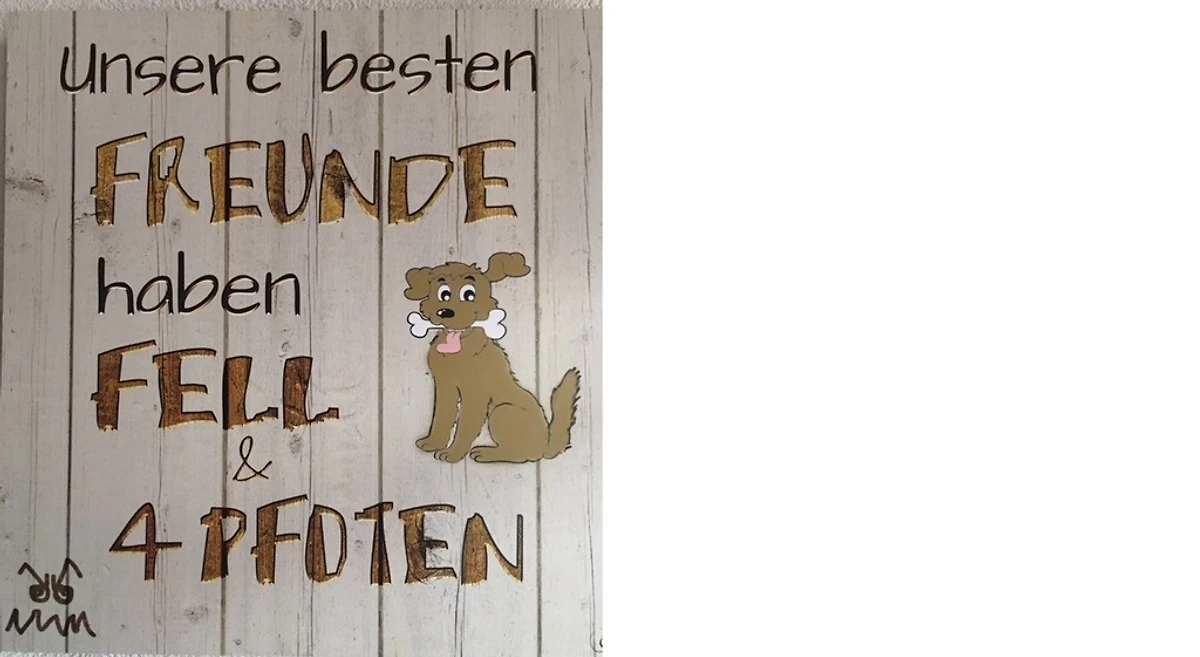 Unsere besten
FREUNDE
haben
FELL
&
4 PFOTEN